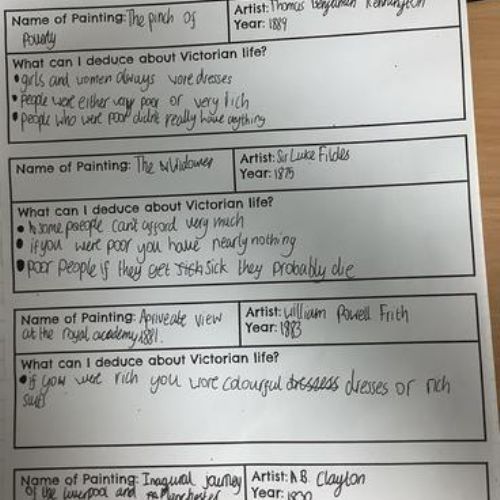 Name of Painting: The pinch of
Poverty
Artist: Thomas Benjamin Kennington
Year: 1889
What can I deduce about Victorian life?
•girls and women always wore dresses
•people were either very poor or very rich
•people who were poor didn't really have anything
Name of Painting: The Widower
Artist: Sir Luke Fildes
Year: 1875
What can I deduce about Victorian life?
• some people can't afford very much
• if you were poor you have nearly nothing
•poor people if they get sick they probably die
Name of Painting: Apriveate view
at the royal academy,1881.
Artist: william Powell Frith
Year: 1883
What can I deduce about Victorian life?
•if you were rich you wore colourful dresses or rich
suits
Name of Painting: Inagural journey
of the liverpool and Manchester
Artist: A.B. Clayton
Year: 1830